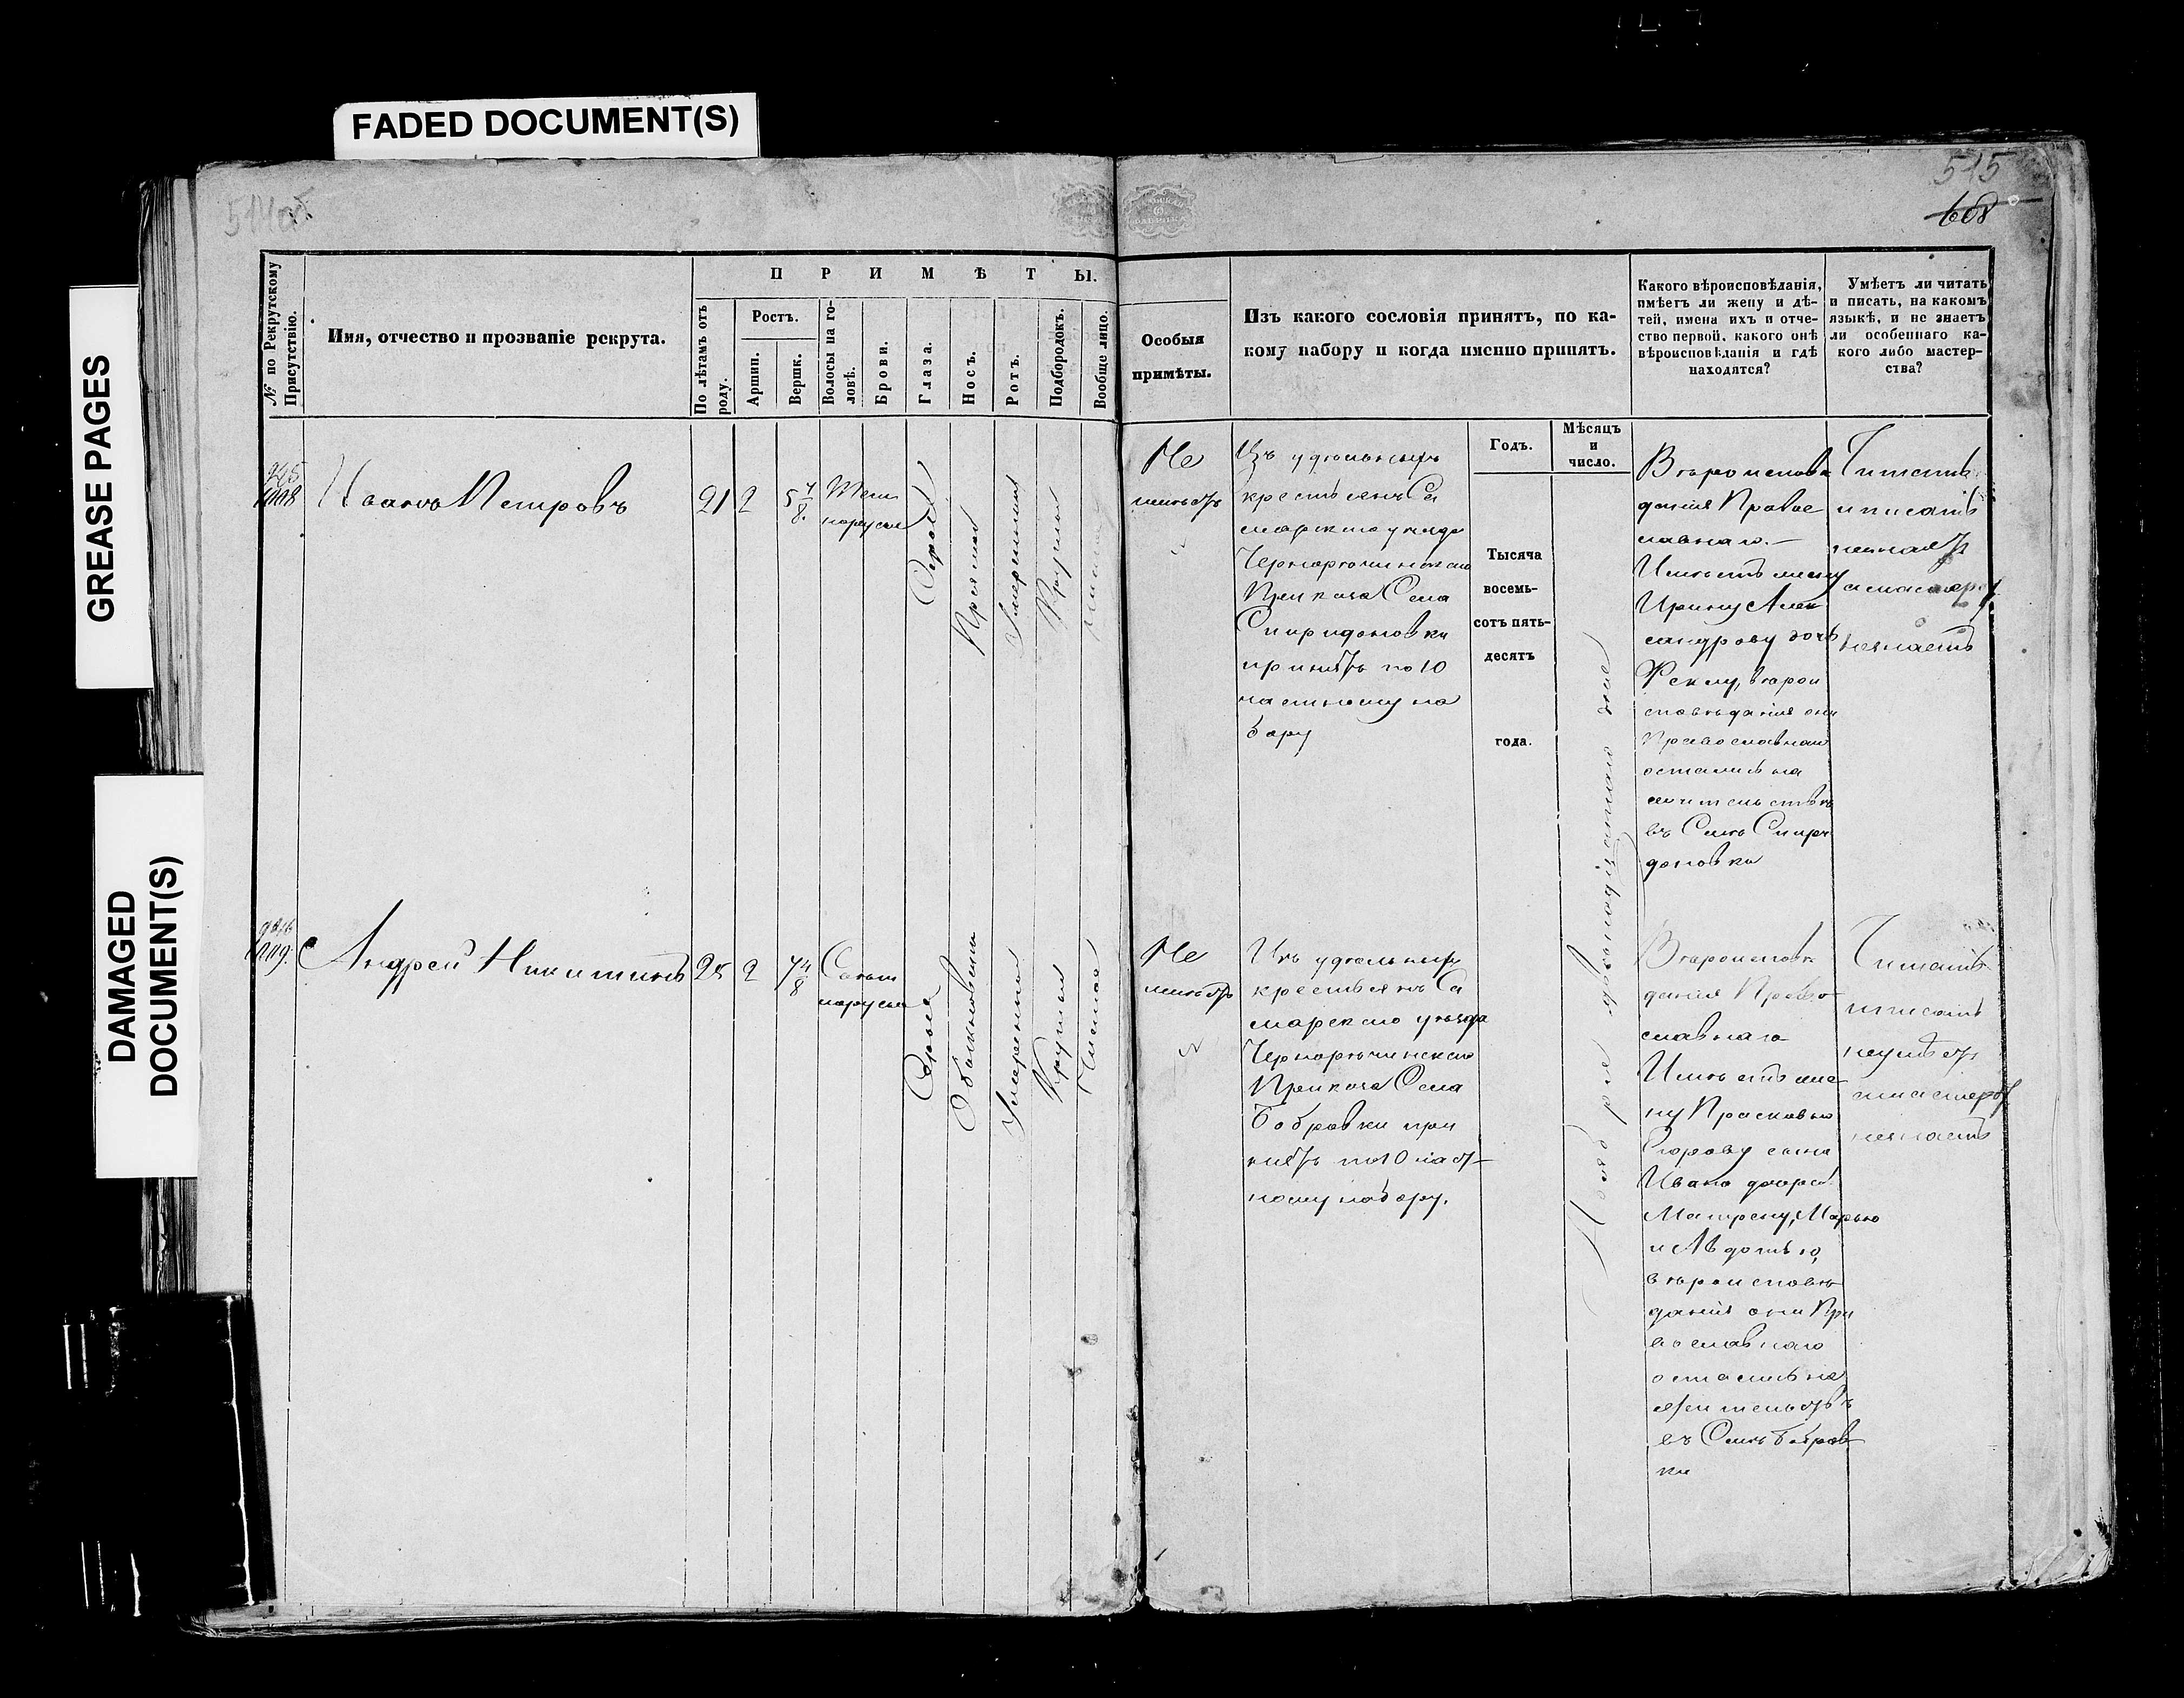 FADED DOCUMENT(S)
GREASE PAGES
DAMAGED
DOCUMENT(S)
514об
515
608
№ по Рекрутскому
Присутствію.
Имя, отчество и прозваніе рекрута.
ПРИМѢТЫ.
По лѣтамъ отъ
роду.
Ростъ.
Аршин.
Вершк.
Волосы на го-
ловѣ.
Брови.
Глаза.
Носъ.
Ротъ.
Подбородокъ.
Вообще лицо.
Особыя
примѣты.
Изъ какого сословія принятъ, по ка-
кому набору и когда именно принятъ.
Годъ.
Мѣсяцъ
и
число.
Какого вѣроисповѣданія,
имѣетъ ли жену и дѣ-
тей, имена ихъ и отче-
ство первой, какого онѣ
вѣроисповѣданія и гдѣ
находятся?
Умѣетъ ли читать
и писать, на какомъ
языкѣ, и не знаетъ
ли особеннаго ка-
кого либо мастер-
ства?
Иванъ Петровъ
21
2
5 4/8
Темно
русые
Серые
Прямой
Умеренный
Круглый
Не
имѣетъ
Изъ удельныхъ
крестьянъ Са
марскаго уезда
Чернореченскаго
Приказа Села
Спиридоновки
принятъ по 10
частному на
бору
Тысяча
восемь-
сотъ пять-
десятъ
года.
Ноября двенадцатаго дня
Вероиспове
данія Правос
лавнаго.
Имѣетъ жену
Ирину Алек
сандрову дочь
Феклу, верои
споведанія они
Православнаго
остались на
жительстве
въ Селе Спири
доновки
Читать
и писать
незнаетъ
а мастерст
незнаетъ
Андрей Никитинъ
25
2
7 4/8
Светло
русые
Серые
Обыкновенный
Умеренный
Круглый
Чистое
Не
имѣетъ
Изъ удельныхъ
крестьянъ Са
марскаго уезда
Чернореченскаго
Приказа Села
Бобровки при
нятъ по 10 част
ному набору.
Вероиспове
данія Право
славнаго
Имѣетъ же
ну Прасковью
Егорову сына
Ивана дочерей
Матрену, Марью
и Авдотью,
вероисповѣ
данія они Пра
вославнаго
остались на
жительствѣ
въ Селѣ Бобров
ки
Читать
и писать
неумѣетъ
а мастерст
незнаетъ